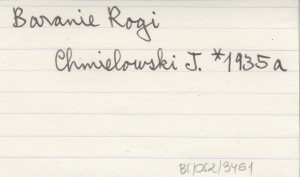 Baranie Rogi
Chmielowski J. *1935a
BT/062/3461